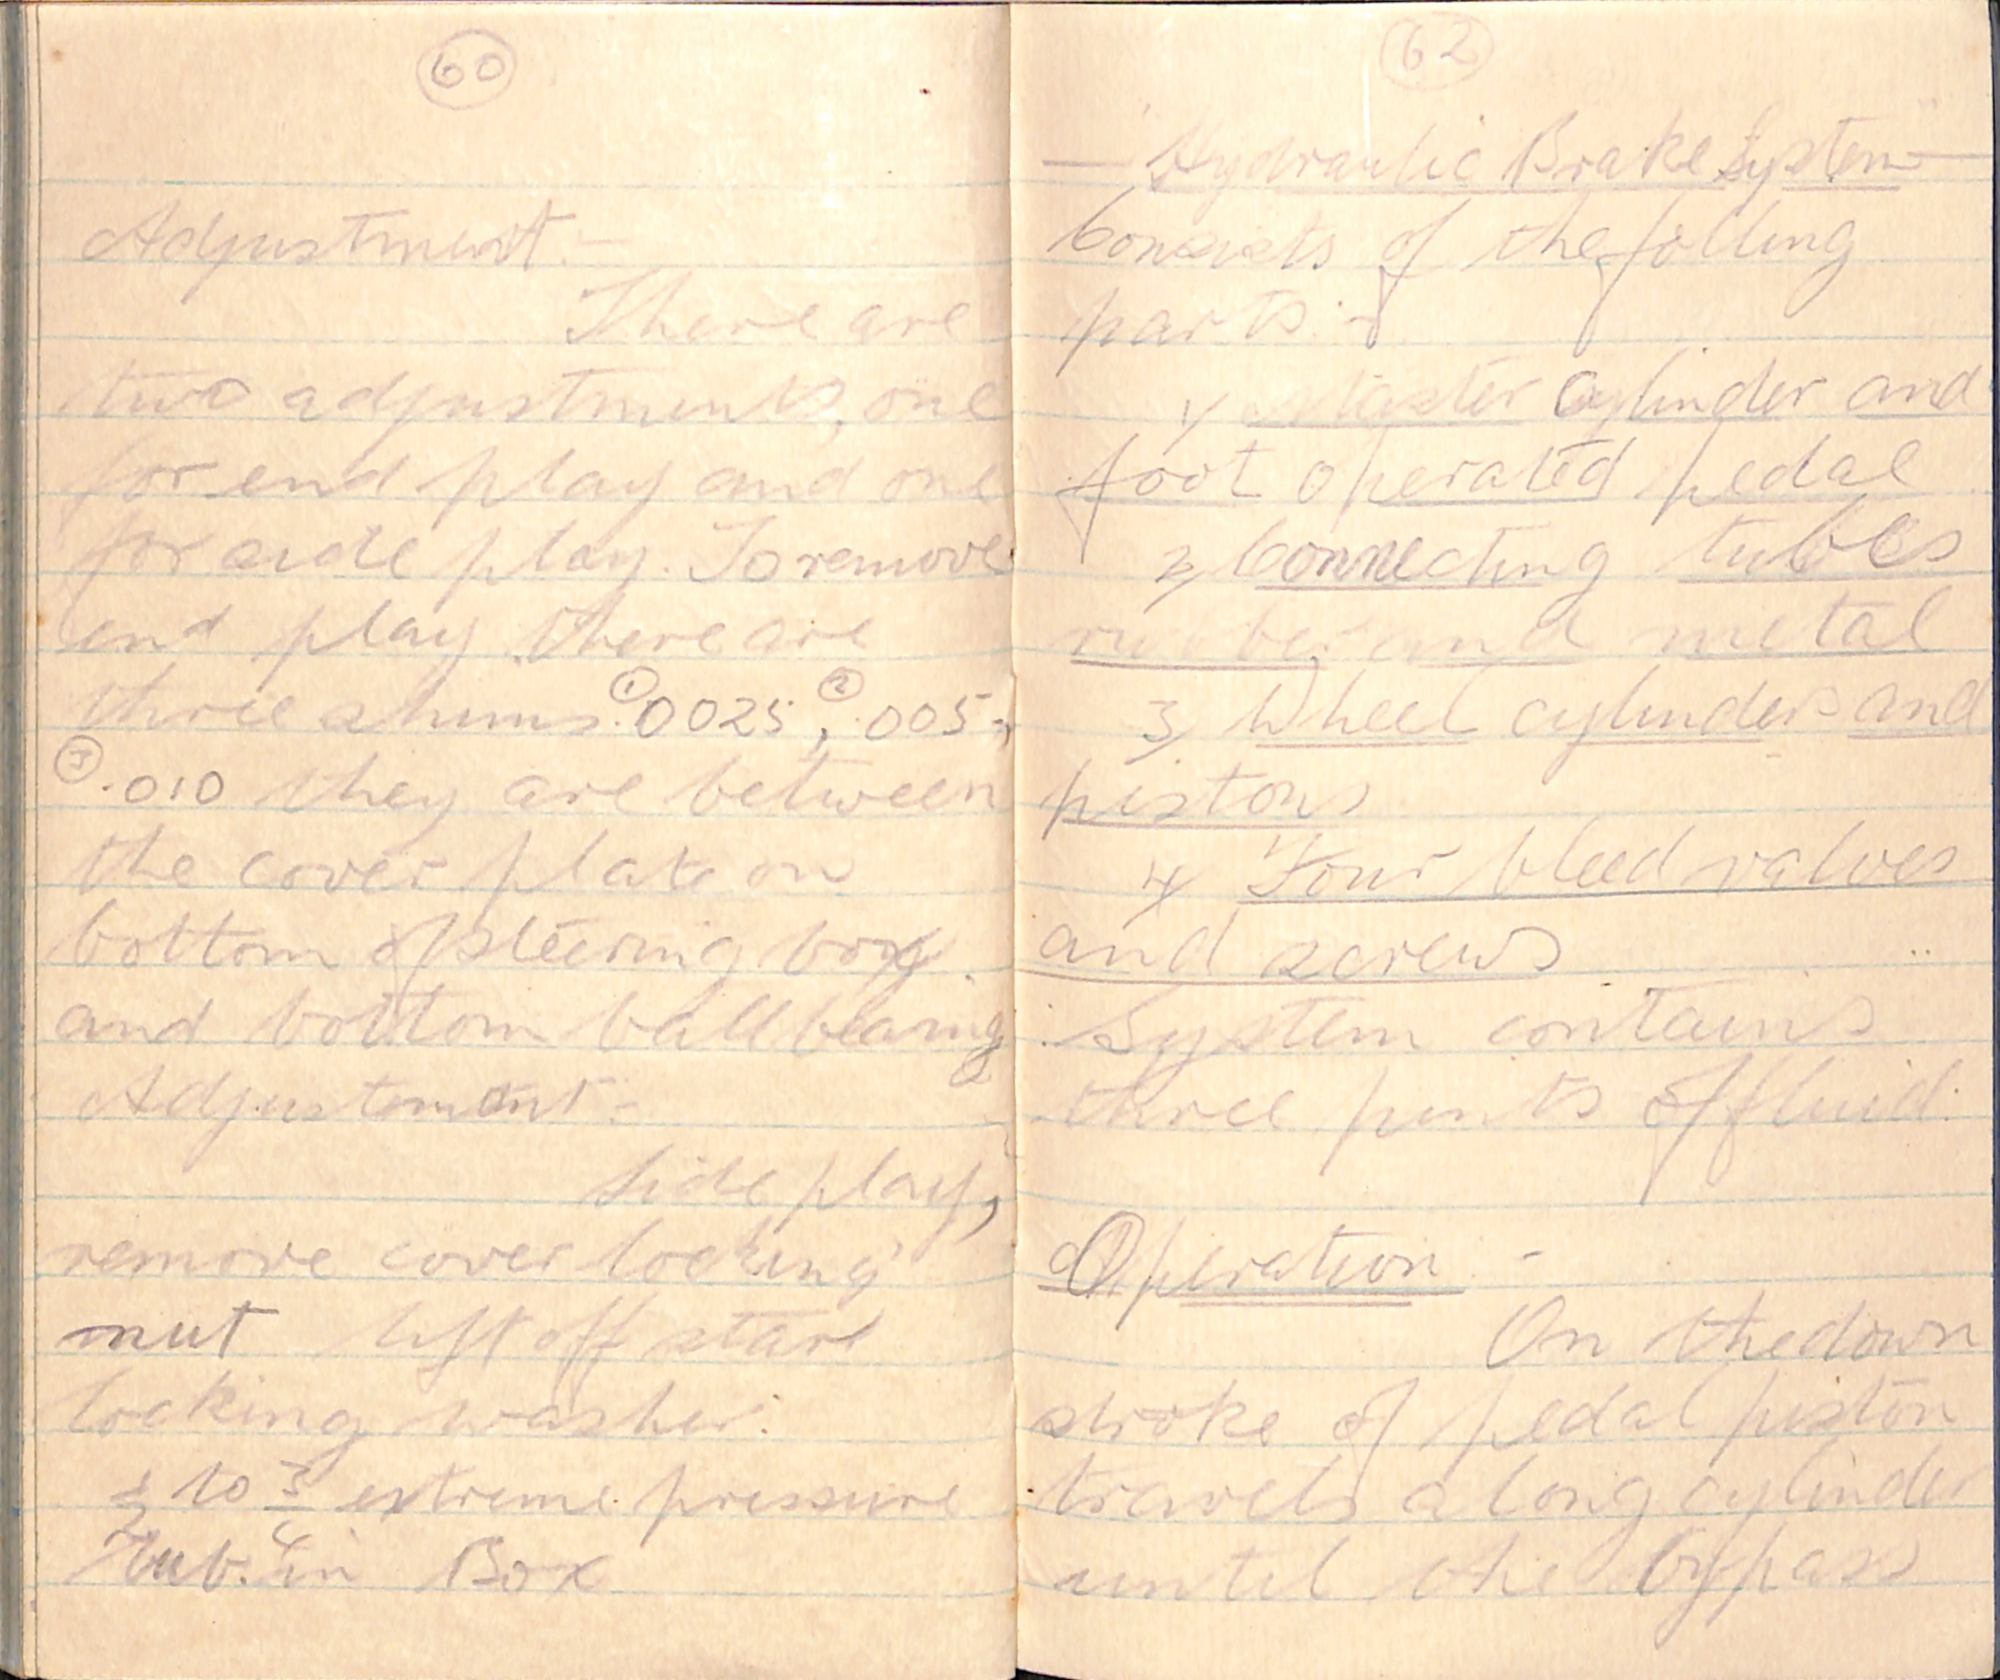 60
Adjustment:-
There are
two adjustments, one
for end play and one
for side play. To remove
end play there are
three shims ① .0025, ② .005,
③ .010 they are between
the cover plate on
bottom of steering box
and bottom ball bearing
Adjustemont:-
Side play,
remove cover locking
nut lift off stare
locking washer.
1/2 to 3/4 extreme pressure
lub. in Box
62
"Hydraulic Brake System"
Consists of the folling
parts:-
1, Master Cylinder and
foot operated pedal
2, Connecting tubes
rubber and metal
3, Wheel cylinders and
pistons
4, Four bleed valves
and screws
System contains
three pints of fluid.
Operation -
On the down
stroke of pedal piston
travels along cylinder
until the bypass